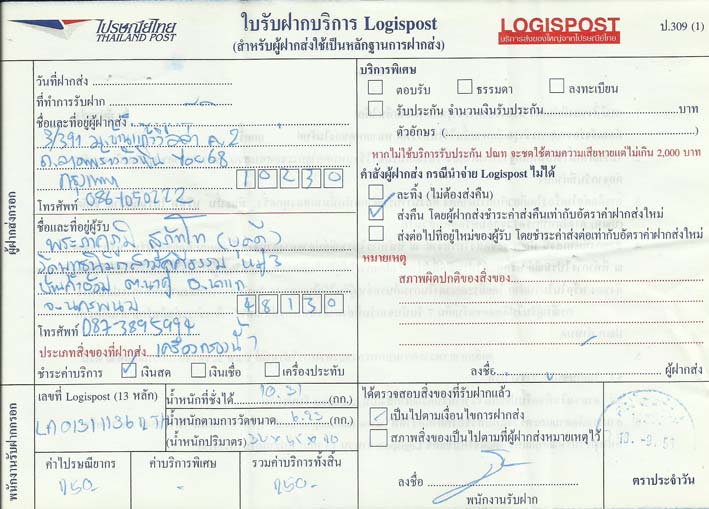 ไปรษณีย์ไทย
THAILAND POST
ใบรับฝากบริการ Logispost
(สำหรับผู้ฝากส่งใช้เป็นหลักฐานการฝากส่ง)
LOGISPOST
บริการส่งของใหญ่จากไปรษณีย์ไทย
ป.309 (1)
ผู้ฝากส่งกรอก
วันที่ฝากส่ง
ที่ทำการรับฝาก
ชื่อและที่อยู่ผู้ฝากส่ง
3/391 ม. 2
กรุงเทพฯ 10230
โทรศัพท์ 0867050222
ชื่อและที่อยู่ผู้รับ
พระภาคภูมิ
หมู่ 3
อ.นาแก
จ.นครพนม 48130
โทรศัพท์ 0873895994
ประเภทสิ่งของที่ฝากส่ง เครื่องกรองน้ำ
ชำระค่าบริการ เงินสด เงินเชื่อ เครื่องประทับ
บริการพิเศษ
ตอบรับ ธรรมดา ลงทะเบียน
รับประกัน จำนวนเงินรับประกัน บาท
ตัวอักษร ( )
หากไม่ใช้บริการรับประกัน ปณท จะชดใช้ตามความเสียหายแต่ไม่เกิน 2,000 บาท
คำสั่งผู้ฝากส่ง กรณีนำจ่าย Logispost ไม่ได้
ละทิ้ง (ไม่ต้องส่งคืน)
ส่งคืน โดยผู้ฝากส่งชำระค่าส่งคืนเท่ากับอัตราค่าฝากส่งใหม่
ส่งต่อไปที่อยู่ใหม่ของผู้รับ โดยชำระค่าส่งต่อเท่ากับอัตราค่าฝากส่งใหม่
หมายเหตุ
สภาพผิดปกติของสิ่งของ
ลงชื่อ ผู้ฝากส่ง
พนักงานรับฝากกรอก
เลขที่ Logispost (13 หลัก)
น้ำหนักที่ชั่งได้ 10.31 (กก.)
น้ำหนักตามการวัดขนาด 6.93 (กก.)
(น้ำหนักปริมาตร)
ค่าไปรษณียากร ค่าบริการพิเศษ รวมค่าบริการทั้งสิ้น
150- - 150-
ได้ตรวจสอบสิ่งของที่รับฝากแล้ว
เป็นไปตามเงื่อนไขการฝากส่ง
สภาพสิ่งของเป็นไปตามที่ผู้ฝากส่งหมายเหตุไว้
ลงชื่อ
พนักงานรับฝาก
ตราประจำวัน